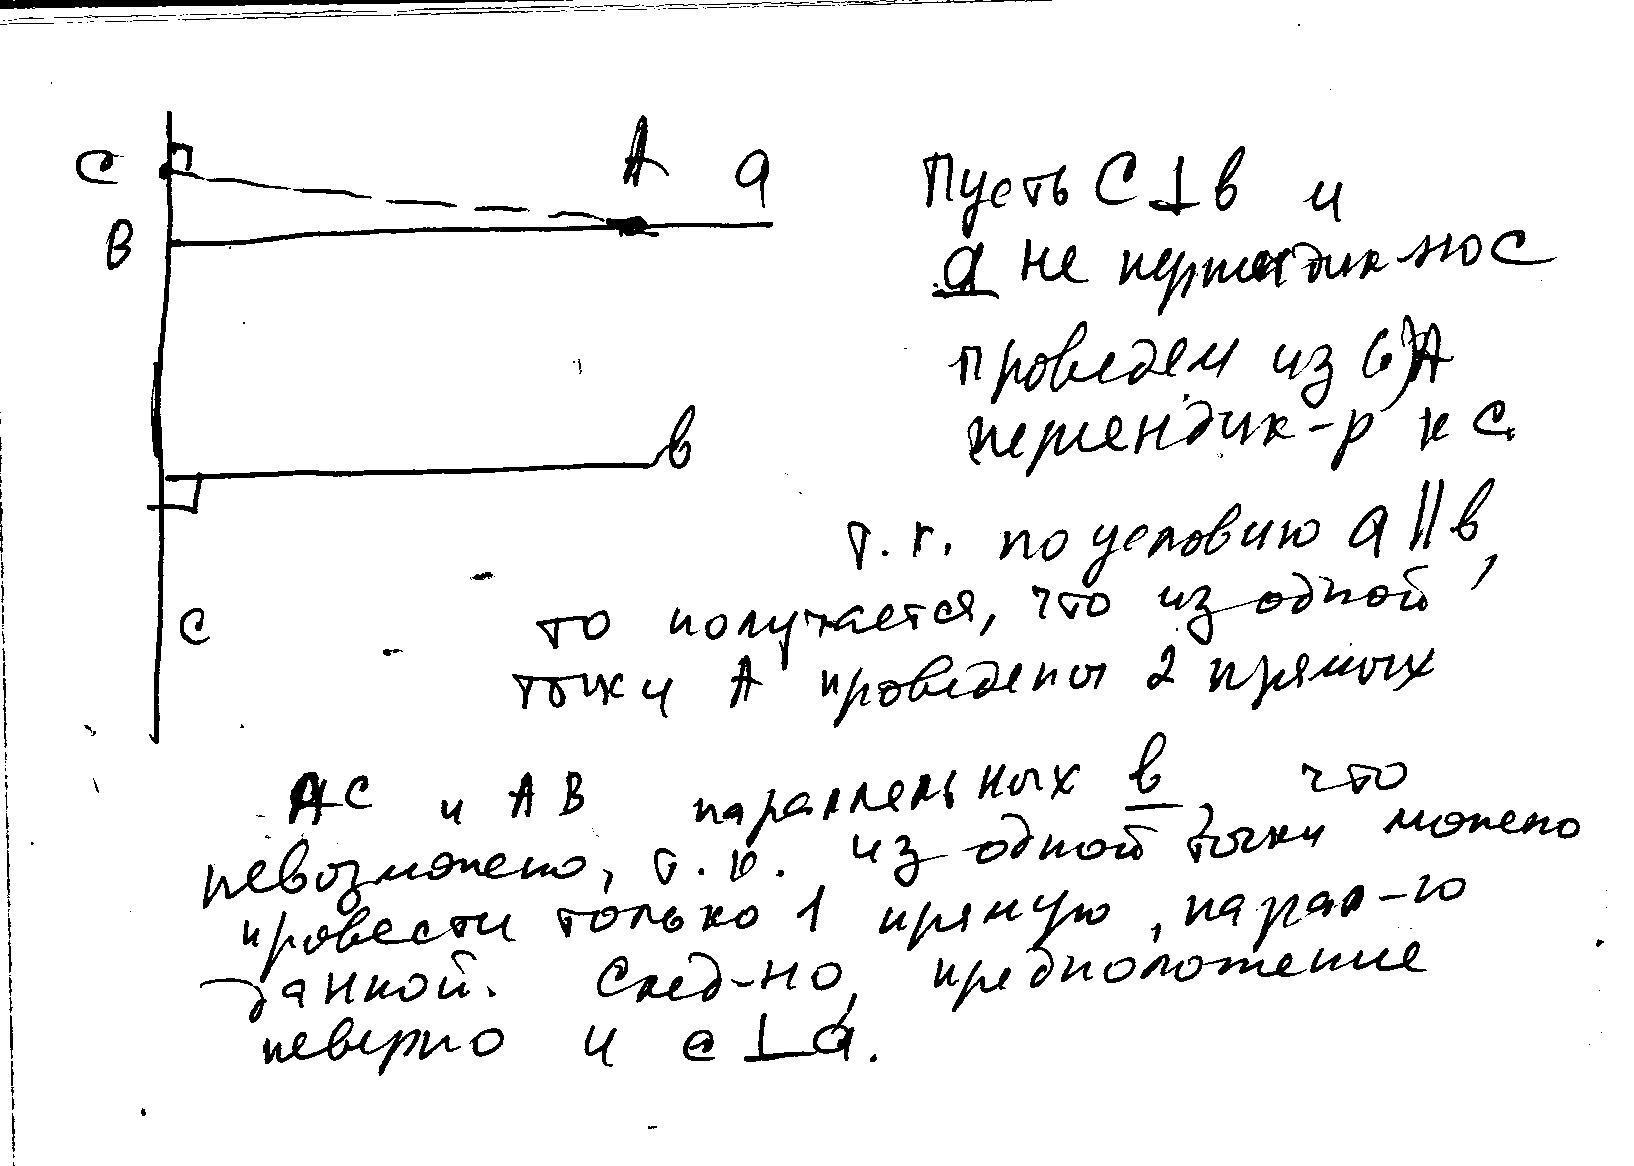 C
A
a
B
в
C
Пусть C⊥в и
a не перпендик-на C
проведем из (·)A
перпендик-р к C.
т.к. по условию a||в,
то получается, что из одной
точки A проведены 2 прямых
AC и AB параллельных в, что
невозможно, т.к. из одной точки можно
провести только 1 прямую, парал-ю
данной. След-но, предположение
неверно и c⊥a.